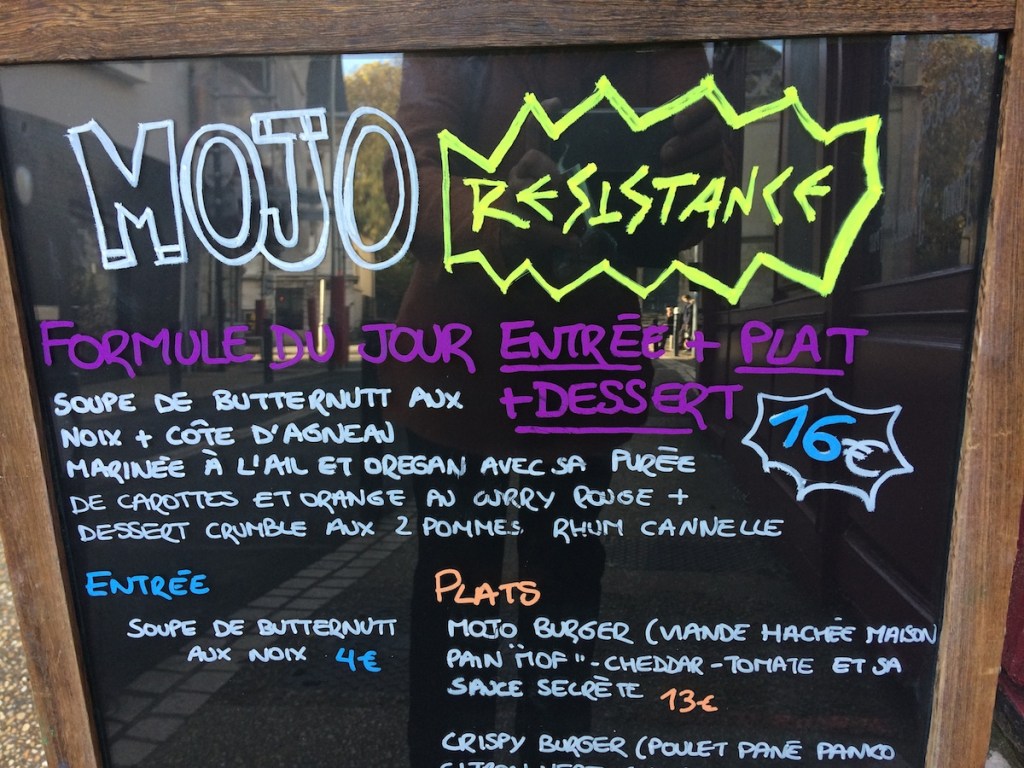 MOJO
RESISTANCE
FORMULE DU JOUR ENTRÉE + PLAT
+ DESSERT
16€
SOUPE DE BUTTERNUTT AUX
NOIX + CÔTE D'AGNEAU
MARINÉE À L'AIL ET OREGAN AVEC SA PURÉE
DE CAROTTES ET ORANGE AU CURRY ROUGE +
DESSERT CRUMBLE AUX 2 POMMES, RHUM CANNELLE
ENTRÉE
SOUPE DE BUTTERNUTT
AUX NOIX 4€
PLATS
MOJO BURGER (VIANDE HACHÉE MAISON
PAIN "MOF" - CHEDDAR - TOMATE ET SA
SAUCE SECRÈTE 13€
CRISPY BURGER (POULET PANÉ PANKO
CITRON VERT